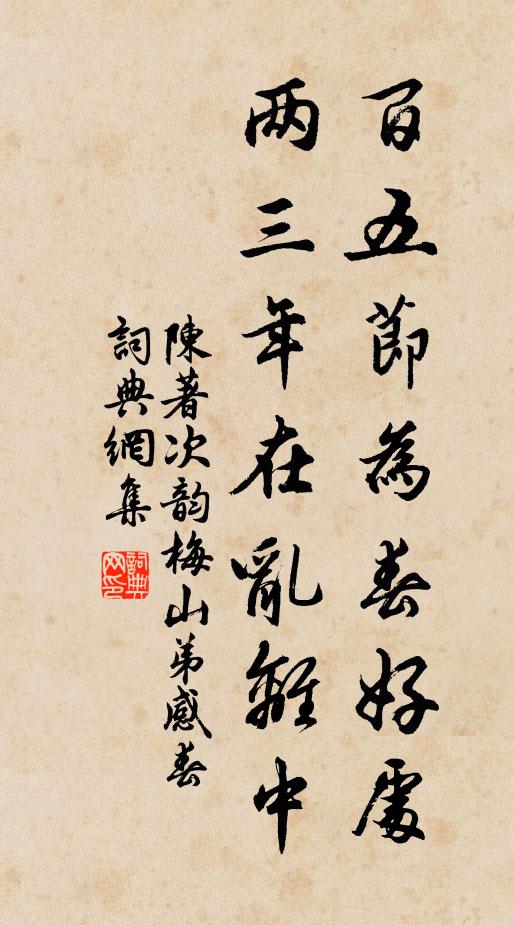 百五節為春好處
两三年在亂離中
陳著次韵梅山弟感春
詞典網集
詞典网印